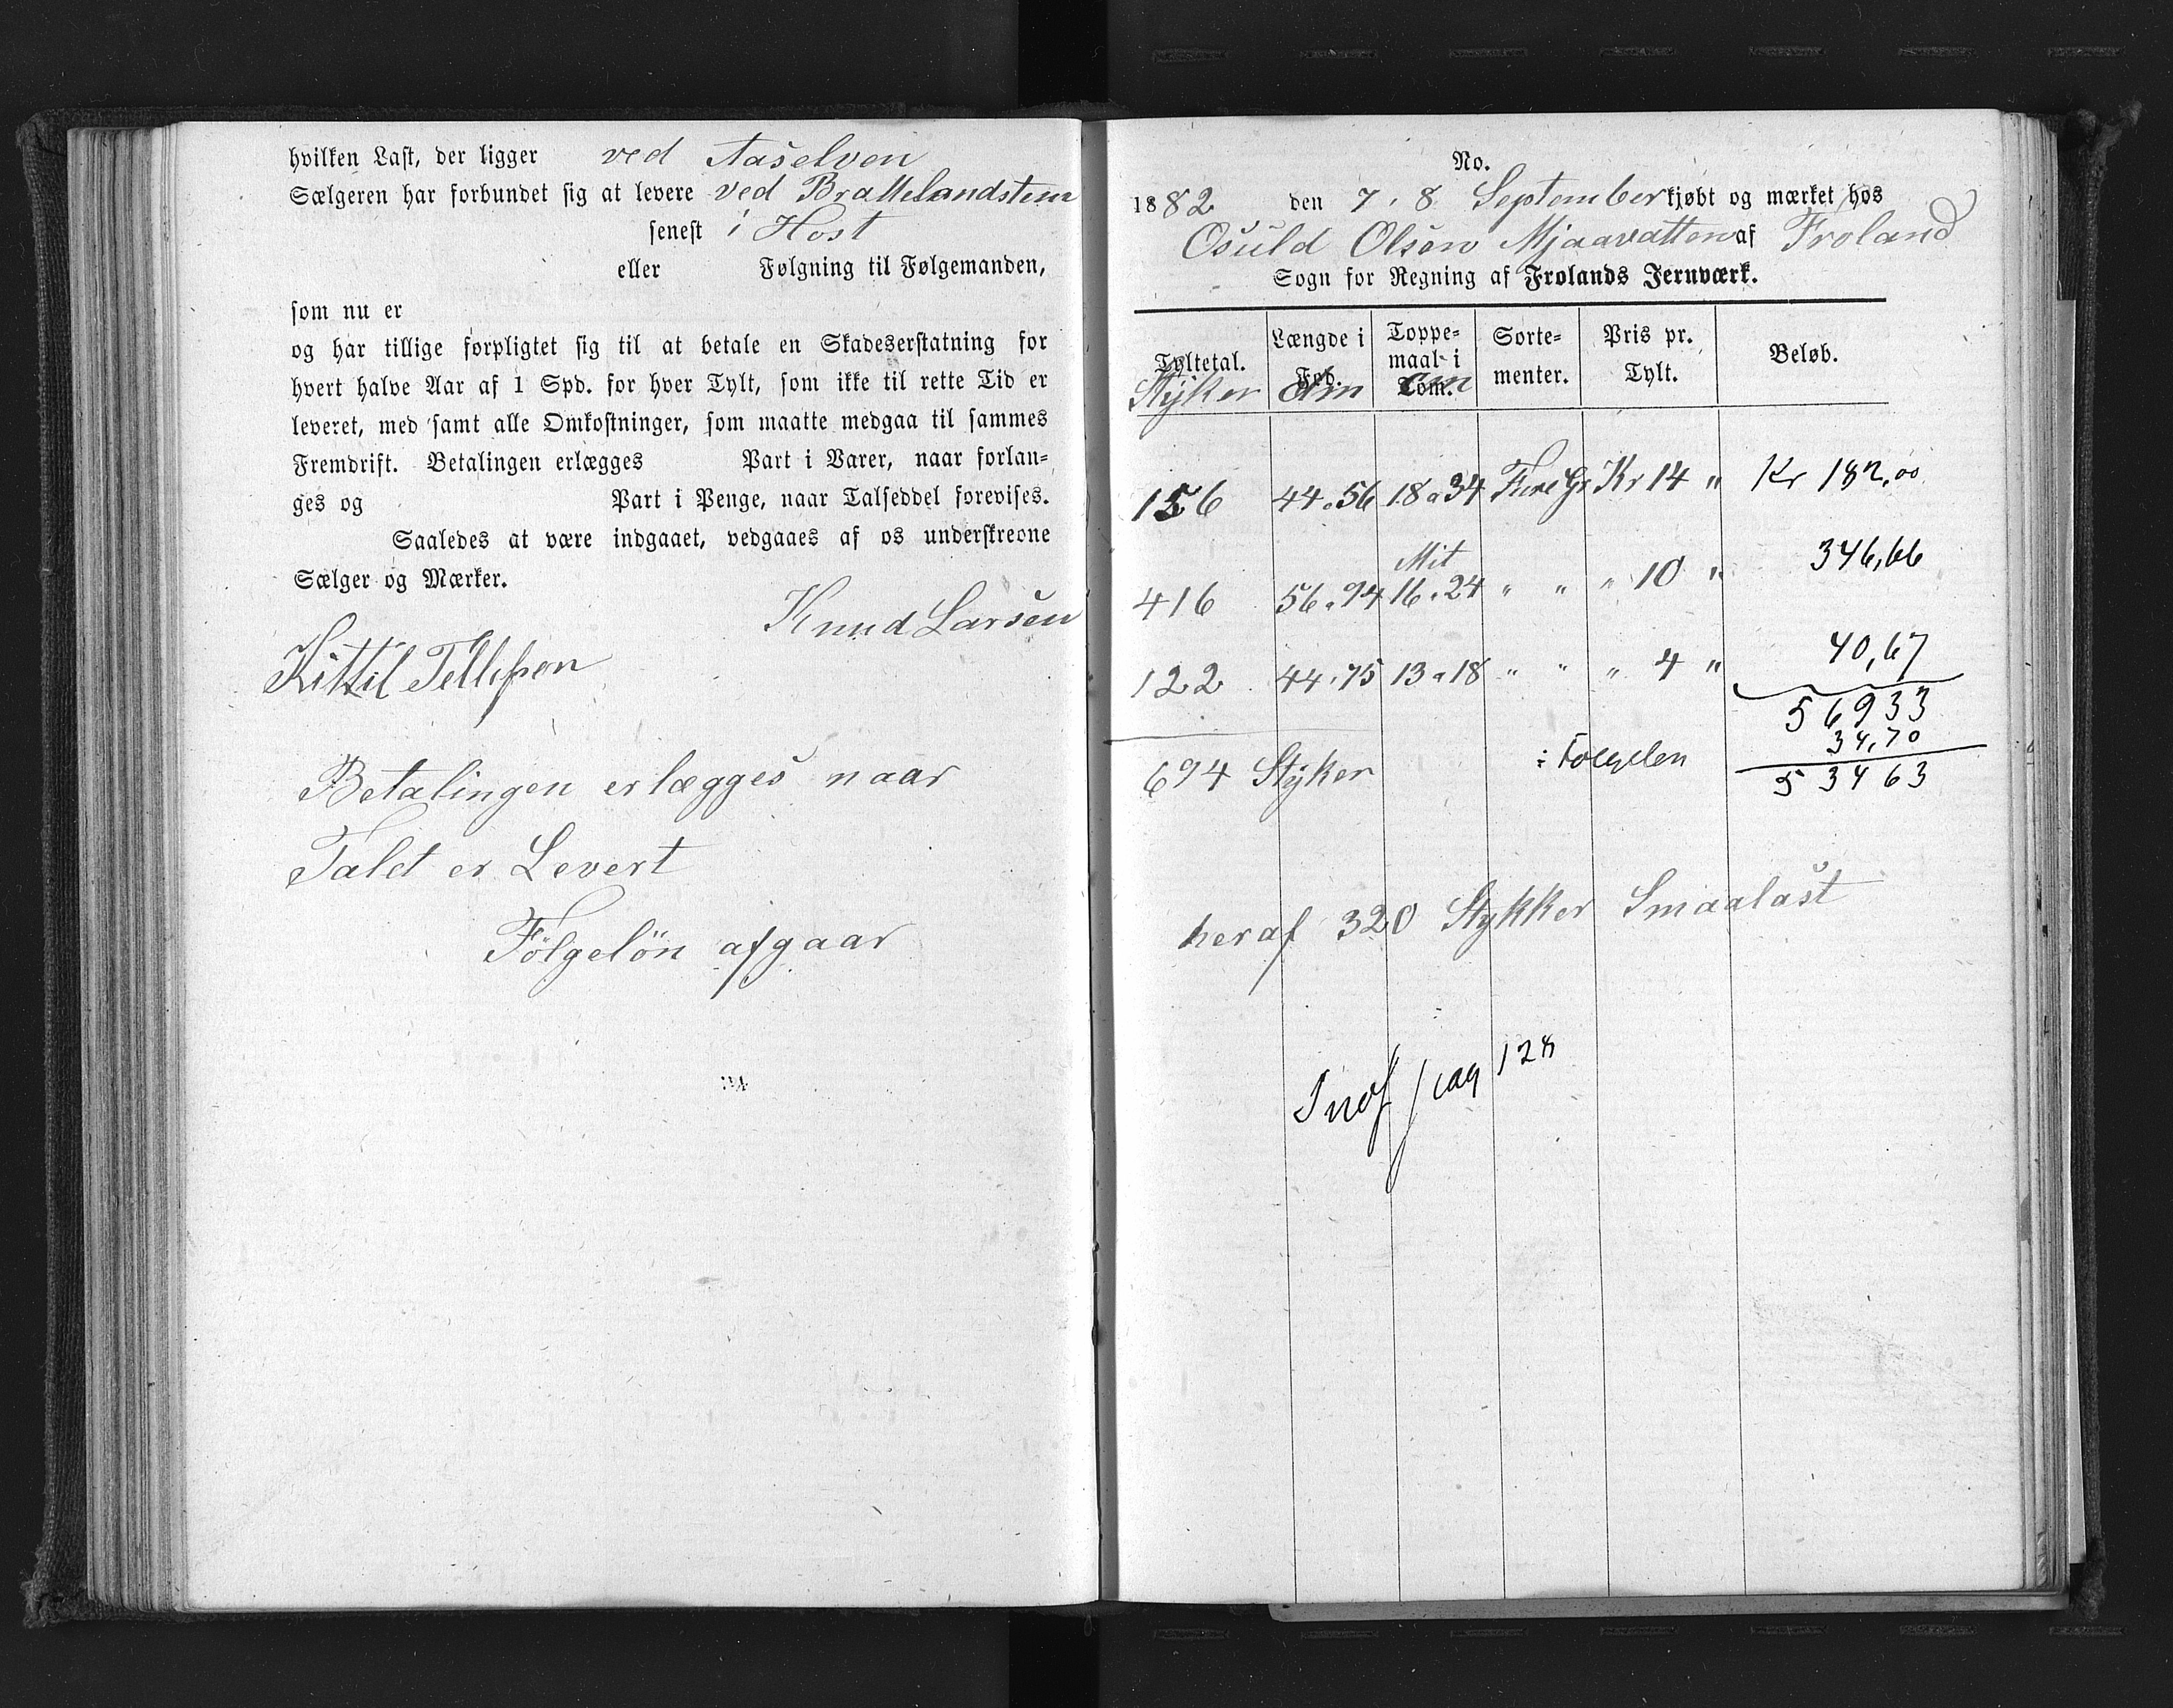 hvilken Last, der ligger ved Aaselven
Sælgeren har forbundet sig at levere ved Brattelandstem
senest i Høst
eller Følgning til Følgemanden,
som nu er
og har tillige forpligtet sig til at betale en Skadeserstatning for
hvert halve Aar af 1 Spd. for hver Tylt, som ikke til rette Tid er
leveret, med samt alle Omkostninger, som maatte medgaa til sammes
Fremdrift. Betalingen erlægges Part i Varer, naar forlan-
ges og Part i Penge, naar Talseddel forevises.
Saaledes at være indgaaet, vedgaaes af os underskrevne
Sælger og Mærker.
Knud Larsen
Kittil Tellefsen
Betalingen erlægges naar
Talet er Levert
Følgeløn afgaar
No.
1882 den 7. 8 September kjøbt og mærket hos
Osuld Olsen Mjaavatten af Froland
Sogn for Regning af Frolands Jernværk.
Tyltetal. Længde i Fod. Toppe-maal i Tom. Sorte-menter. Pris pr. Tylt. Beløb.
Stÿker dm cm
156 44 a 56 18 a 34 Furu Gr Kr 14 " Kr 182,00
Mit
416 56 a 94 16 a 24 " " " 10 " 346,66
122 44 a 75 13 a 18 " " " 4 " 40,67
56933
34,70
694 Stÿker 53463
heraf 320 Stykker Smaalast
128